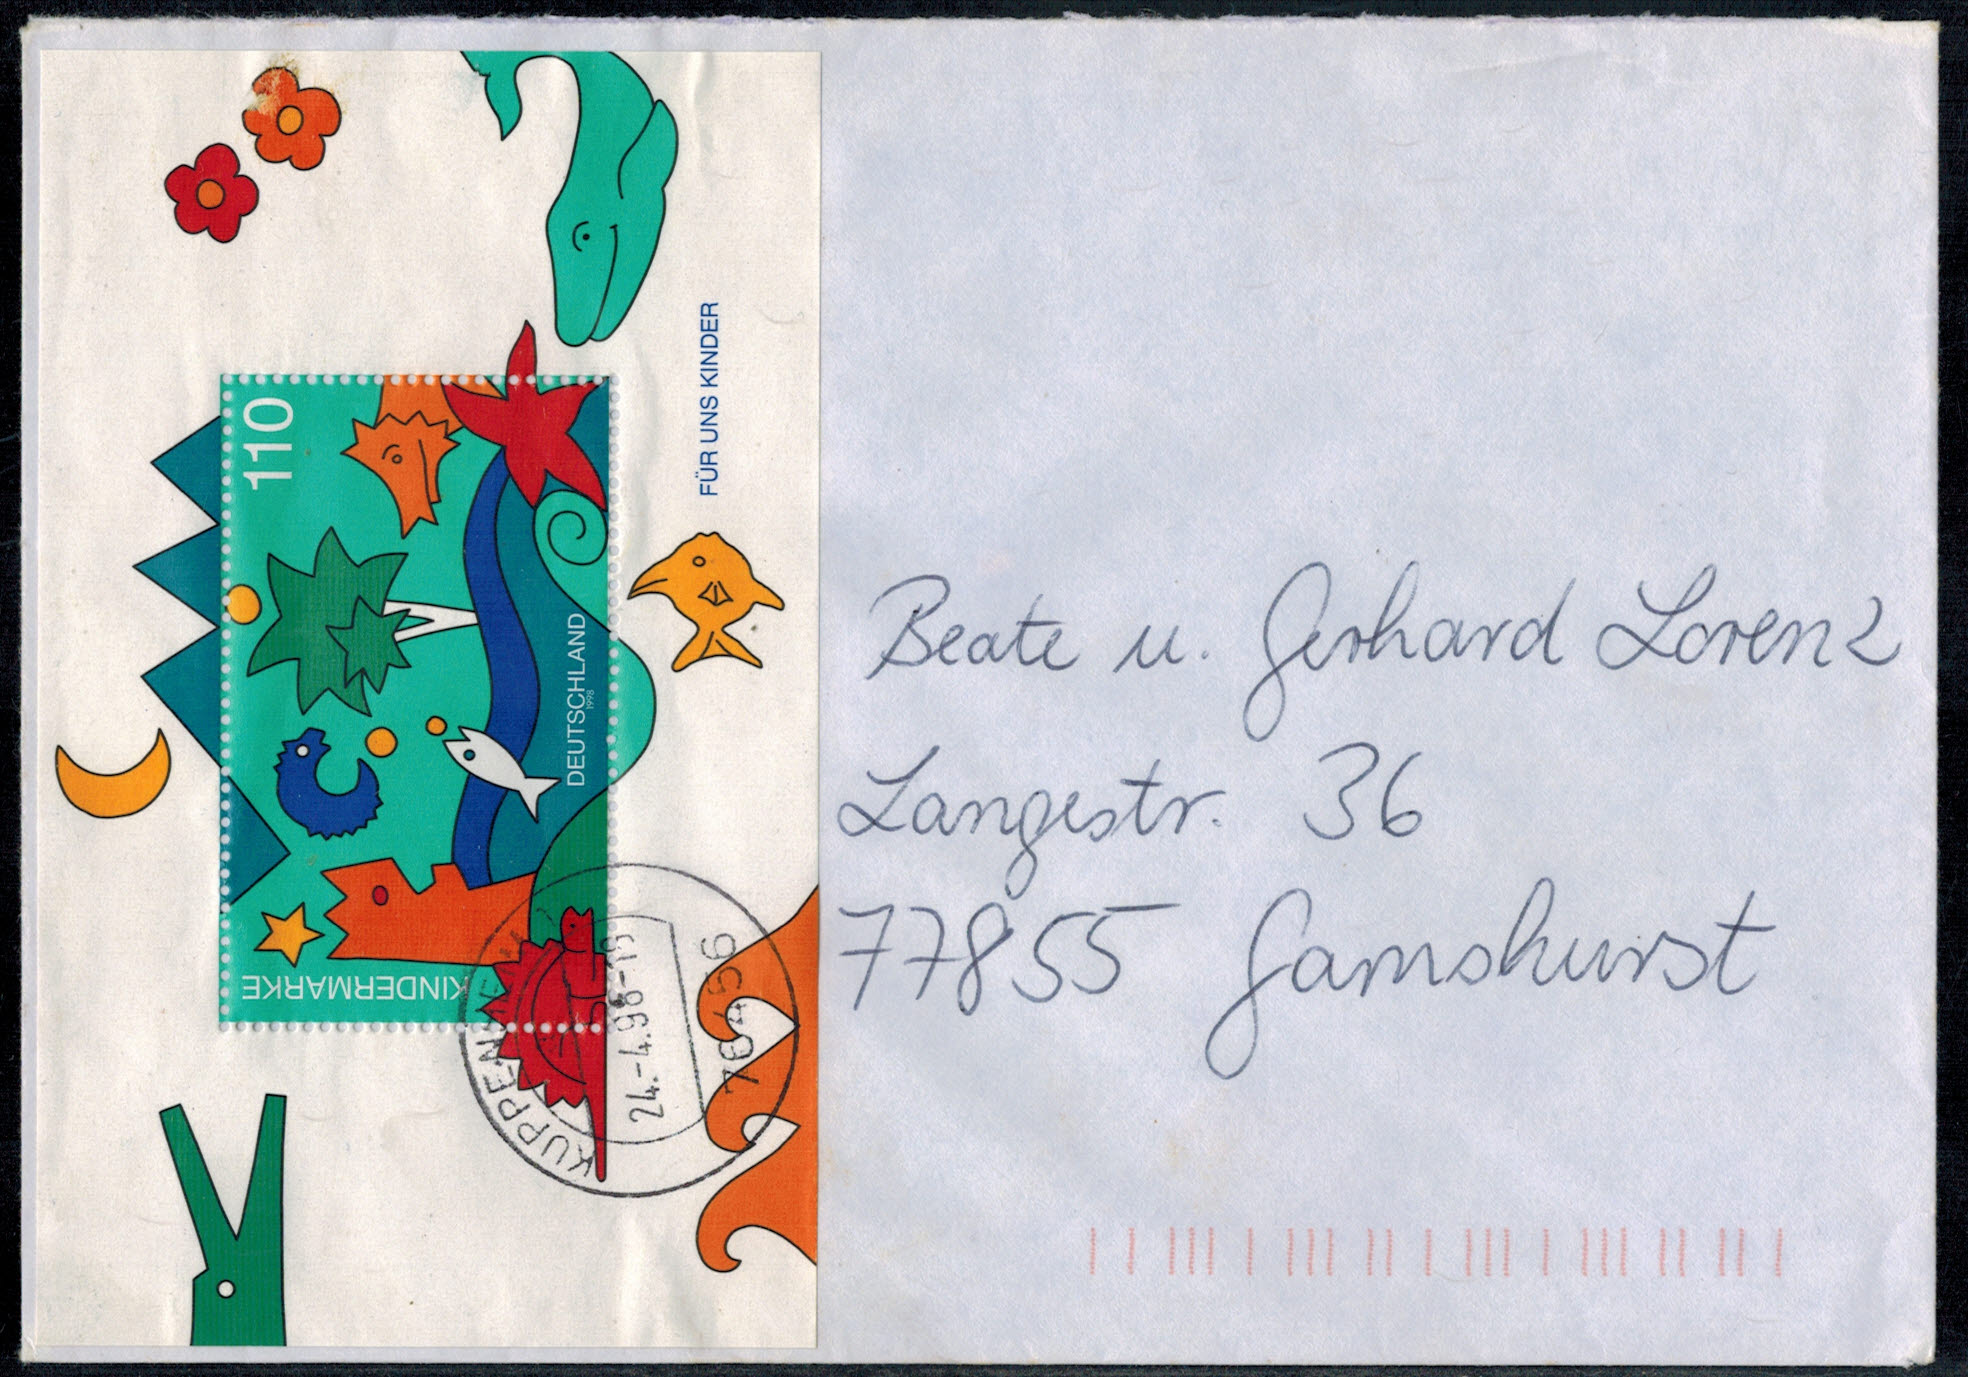 FÜR UNS KINDER
110
DEUTSCHLAND
1998
KINDERMARKE
24.-4.98-19
76456
Beate u. Gerhard Lorenz
Langestr. 36
77855 Gamshurst